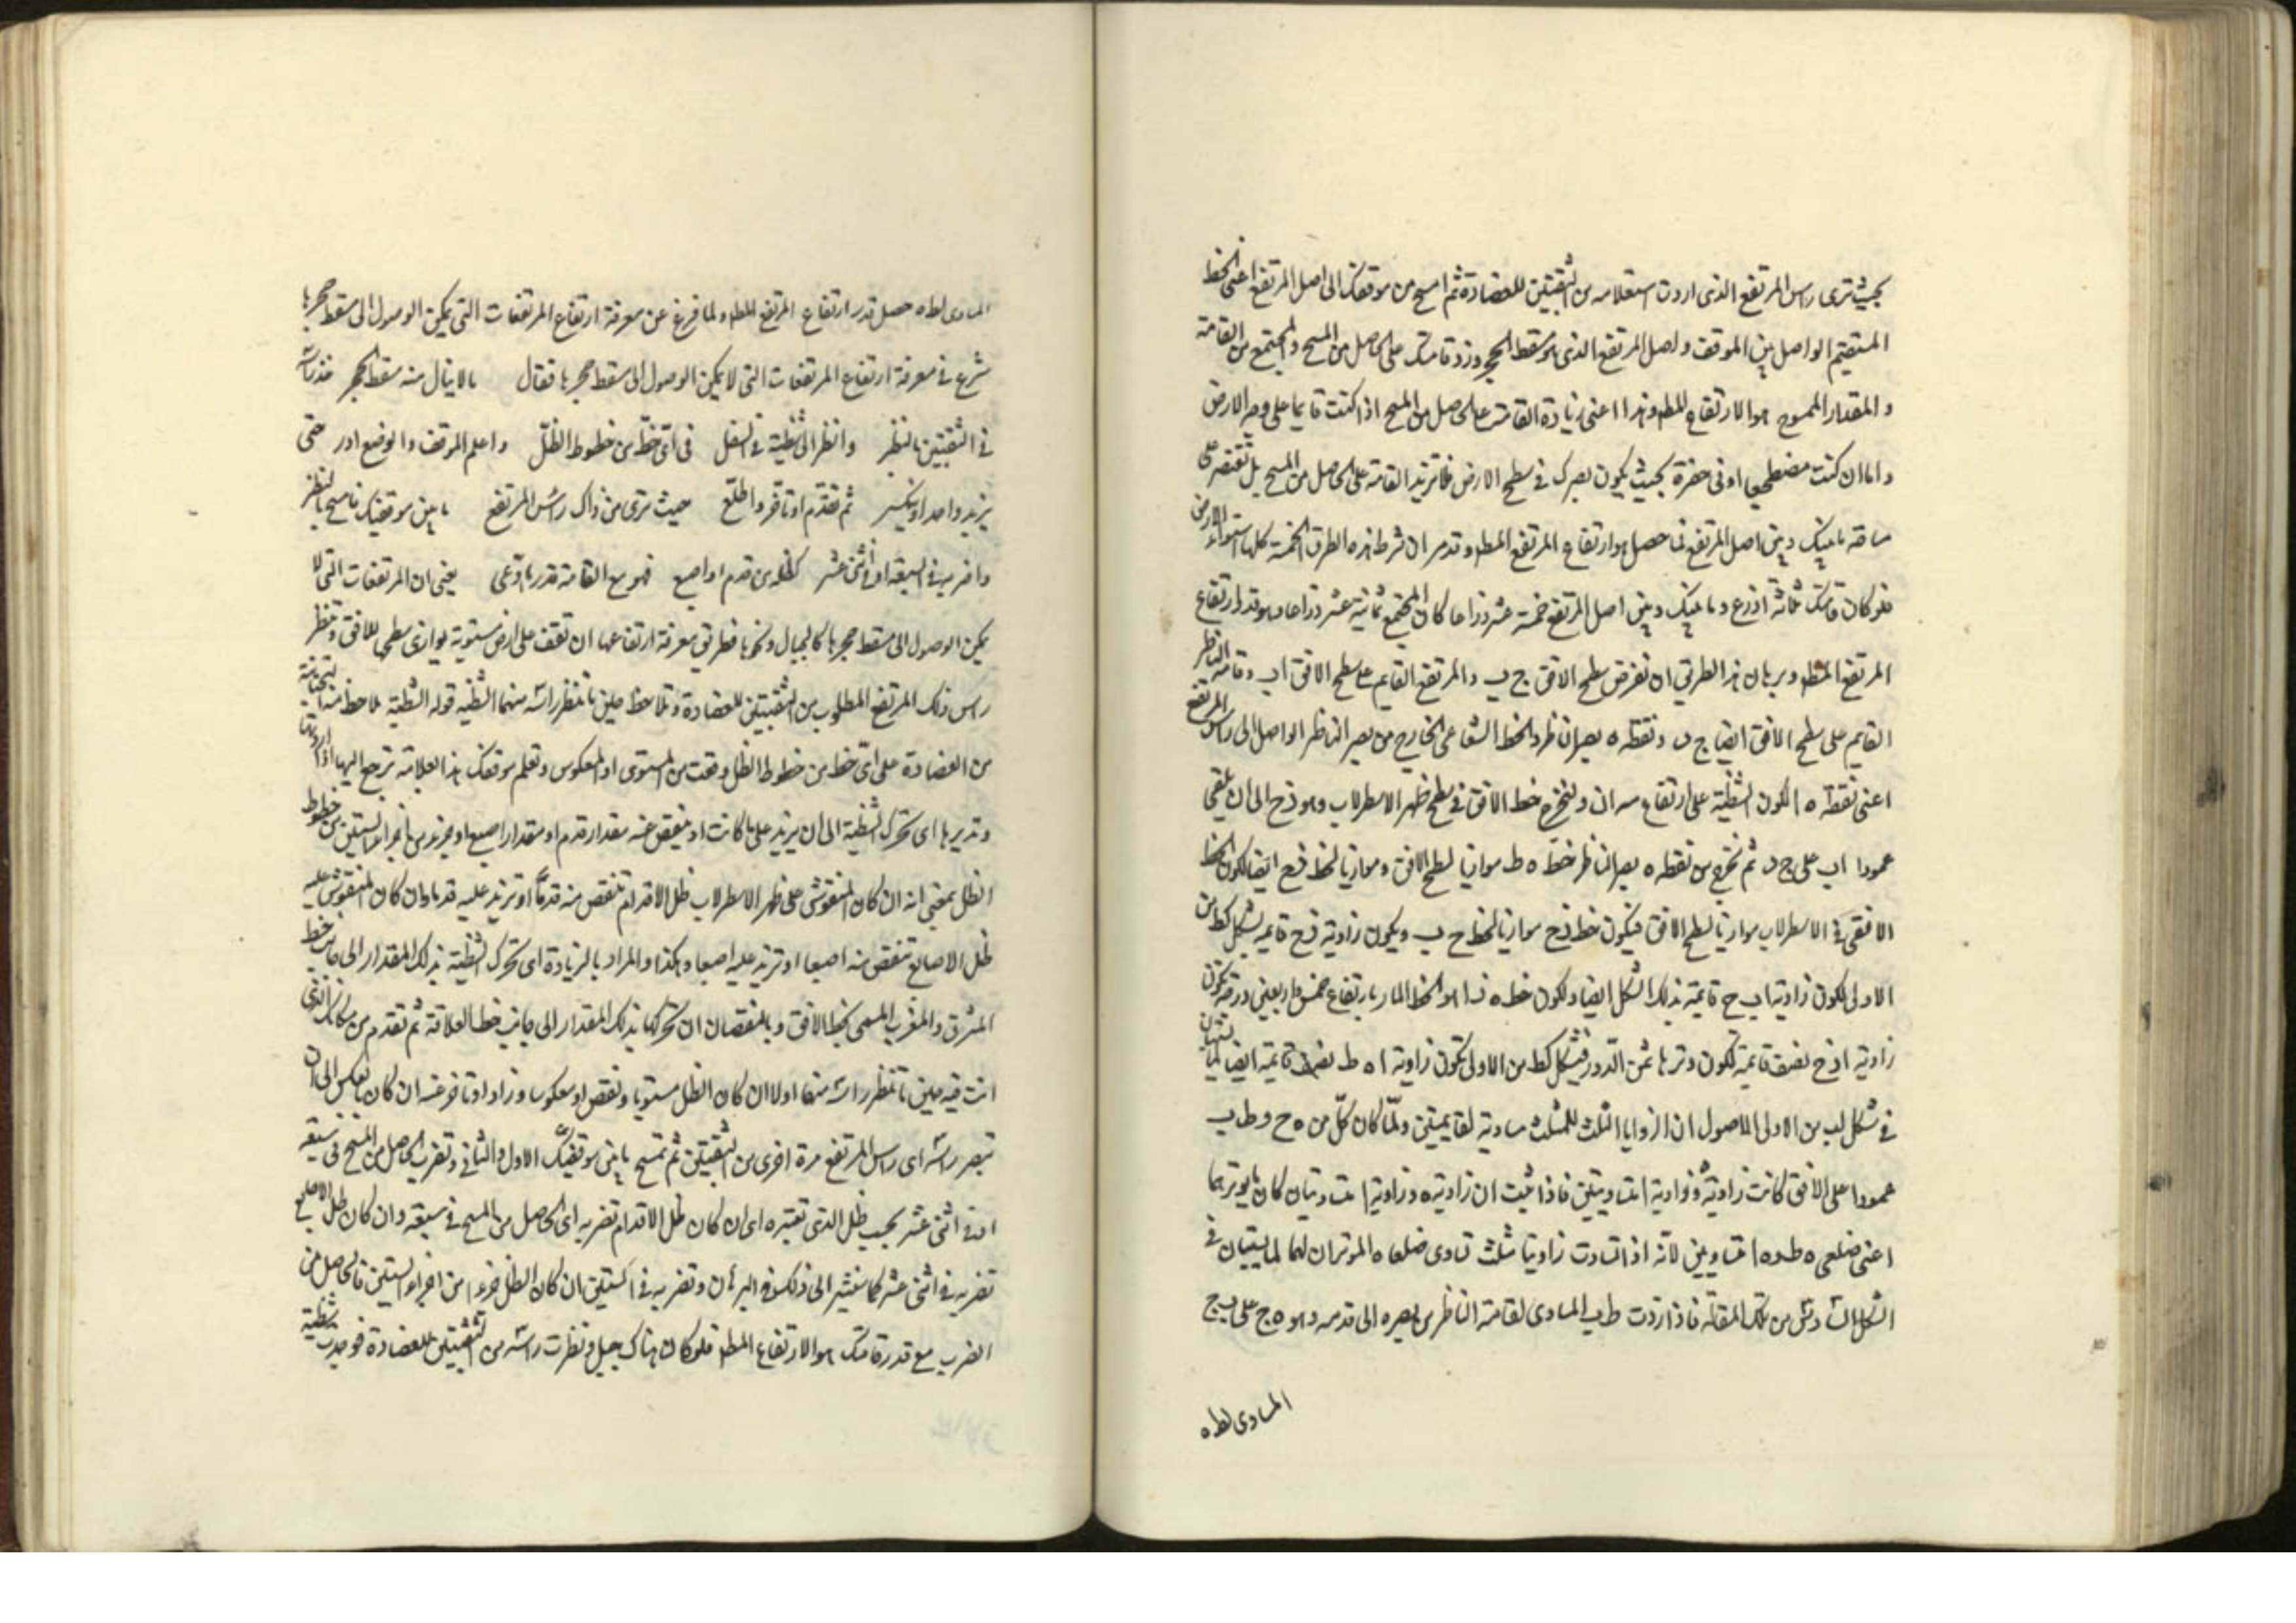 بحيث ترى راس المرتفع الذى اردت استعلامه من الثقبتين للعضادة ثم امسح من موقفك الى اصل المرتفع اعنى الخط
المستقيم الواصل بين الموقف واصل المرتفع الذى هو مسقط الحجر وزد قامتك على الحاصل من المسح والمجتمع من القامة
والمقدار الممسوح هو الارتفاع المط وهذا اعنى زيادة القامة على الحاصل من المسح اذا كنت قايما على وجه الارض
واما ان كنت مضطجعا او فى حفرة بحيث يكون بصرك فى سطح الارض فلا تزيد القامة على الحاصل من المسح بل تقتصر على
مسافة ما بينك وبين اصل المرتفع فما حصل هو ارتفاع المرتفع المط وقد مر ان شرط هذه الطرق الخمسة كلها استواء الارض
فلو كان قامتك ثلثة اذرع وما بينك وبين اصل المرتفع خمسة عشر ذراعا كان المجتمع ثمانية عشر ذراعا وهو قدر ارتفاع
المرتفع المط وبرهان هذا الطريق ان نفرض سطح الافق ج ب والمرتفع القايم على سطح الافق اب وقامة الناظر
القايم على سطح الافق ايضا ج ه ونقطة ه بصر الناظر والخط الشعاعى الخارج من بصر الناظر الواصل الى راس المرتفع
اعنى نقطة ه ا لكون الشظية على ارتفاع مه ان ولنخرج خط الافق فى سطح ظهر الاسطرلاب وهو ذح الى ان يلقى
عمودا اب على ح ثم نخرج من نقطة ه بصر الناظر خط ه ط موازيا لسطح الافق وموازيا لخط ذح ايضا لكون الخط
الافقى فى الاسطرلاب موازيا لسطح الافق فيكون خط ذح موازيا لخط ج ب ويكون زاوية ذح قايمة بشكل كط من
الاولى لكون زاوية اب ج قايمة بذلك الشكل ايضا ولكون خط ه ذ ا هو الخط المار بارتفاع خمس واربعين درجة تكون
زاوية اذح نصف قايمة لكون وترها ثمن الدور فبشكل كط من الاولى تكون زاوية ا ه ط نصف قايمة ايضا لما تبين
فى شكل لب من الاولى للاصول ان الزوايا الثلث للمثلث مساوية لقايمتين ولما كان كل من ه ج و ط ب
عمودا على الافق كانت زاوية ه وزاوية ا متساويتين فاذا ثبت ان زاوية ه وزاوية ا متساويتان كان ما يوترهما
اعنى ضلعى ه ط و ط ا متساويين لانه اذا تساوت زاويتا مثلث تساوى ضلعاه الموتران لهما لما يتبين فى
الشكل السادس من تلك المقالة فاذا زدت ط ب المساوى لقامة الناظر من بصره الى قدمه وهو ه ج على ب ج
المساوى لط ه
المساوى لط ه حصل قدر ارتفاع المرتفع المط ولما فرغ عن معرفة ارتفاع المرتفعات التى يمكن الوصول الى مسقط حجرها
شرع فى معرفة ارتفاع المرتفعات التى لا يمكن الوصول الى مسقط حجرها فقال ما لا ينال منه مسقط الحجر فخذ راسه
فى الثقبتين بالنظر وانظر الى شظية فى السفل فى اى خط من خطوط الظل واعلم الموقف والوضع ادر حتى
يزيد واحد او ينكسر ثم تقدم او تأخر واطلع حيث ترى من ذاك راس المرتفع ما بين موقفيك فامسح بالنظر
واضربه فى السبعة او فى اثنى عشر لظل من قدم او اصبع فهو مع القامة قدر ما ادعى يعنى ان المرتفعات التى لا
يمكن الوصول الى مسقط حجرها كالجبال ونحوها فطريق معرفة ارتفاعها ان تقف على ارض مستوية يوازى سطحها للافق وتنظر
راس ذلك المرتفع المطلوب من الثقبتين للعضادة وتلاحظ حين ما تنظر راسه منهما الشظية قوله الشظية تلاحظ منه التحتانية
من العضادة على اى خط من خطوط الظل وقعت من المستوى او المعكوس وتعلم موقفك هذا بعلامة ترجع اليها اذا اردت
وتديرها اى تحرك الشظية الى ان يزيد على ما كانت او ينقص عنه مقدار قدم او مقدار اصبع او جزء من اجزاء الستين من خطوط
الظل بمعنى انه ان كان المنقوش على ظهر الاسطرلاب ظل الاقدام تنقص منه قدما او تزيد عليه قدما وان كان المنقوش عليه
ظل الاصابع تنقص منه اصبعا او تزيد عليه اصبعا وهكذا والمراد بالزيادة اى تحرك الشظية بذلك المقدار الى جانب خط
المشرق والمغرب المسمى بخط الافق وبالنقصان ان تحركها بذلك المقدار الى جانب خط العلاقة ثم تقدم من مكانك الذى
انت فيه حين ما تنظر راسه منها اولا ان كان الظل مستويا ونقص او معكوسا وزاد او تأخر عنه ان كان بالعكس الى ان
تبصر راسه اى راس المرتفع مرة اخرى من الثقبتين ثم تمسح ما بين موقفيك الاول والثانى وتضرب الحاصل من المسح فى سبعة
او فى اثنى عشر بحسب ظل الذى تعتبره اى ان كان ظل الاقدام تضربه اى الحاصل من المسح فى سبعة وان كان ظل الاصابع
تضربه فى اثنى عشر كما سنشير الى ذلك فى البرهان وتضربه فى الستين ان كان الظل جزءا من اجزاء الستين فالحاصل من
الضرب مع قدر قامتك هو الارتفاع المط فلو كان هناك جبل ونظرت راسه من الثقبتين للعضادة فوجدت شظية